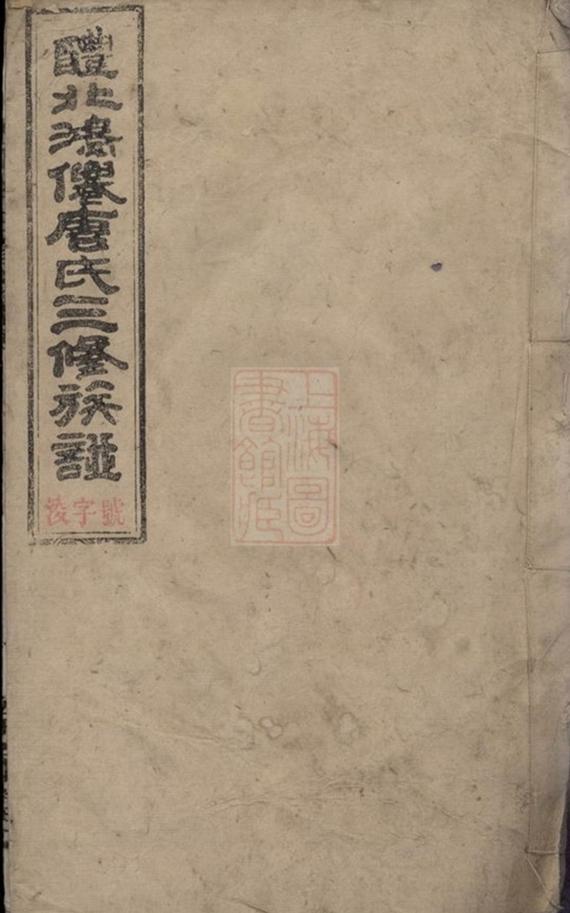 醴北鴻僊唐氏三修族譜
淩字號
上海圖
書館藏